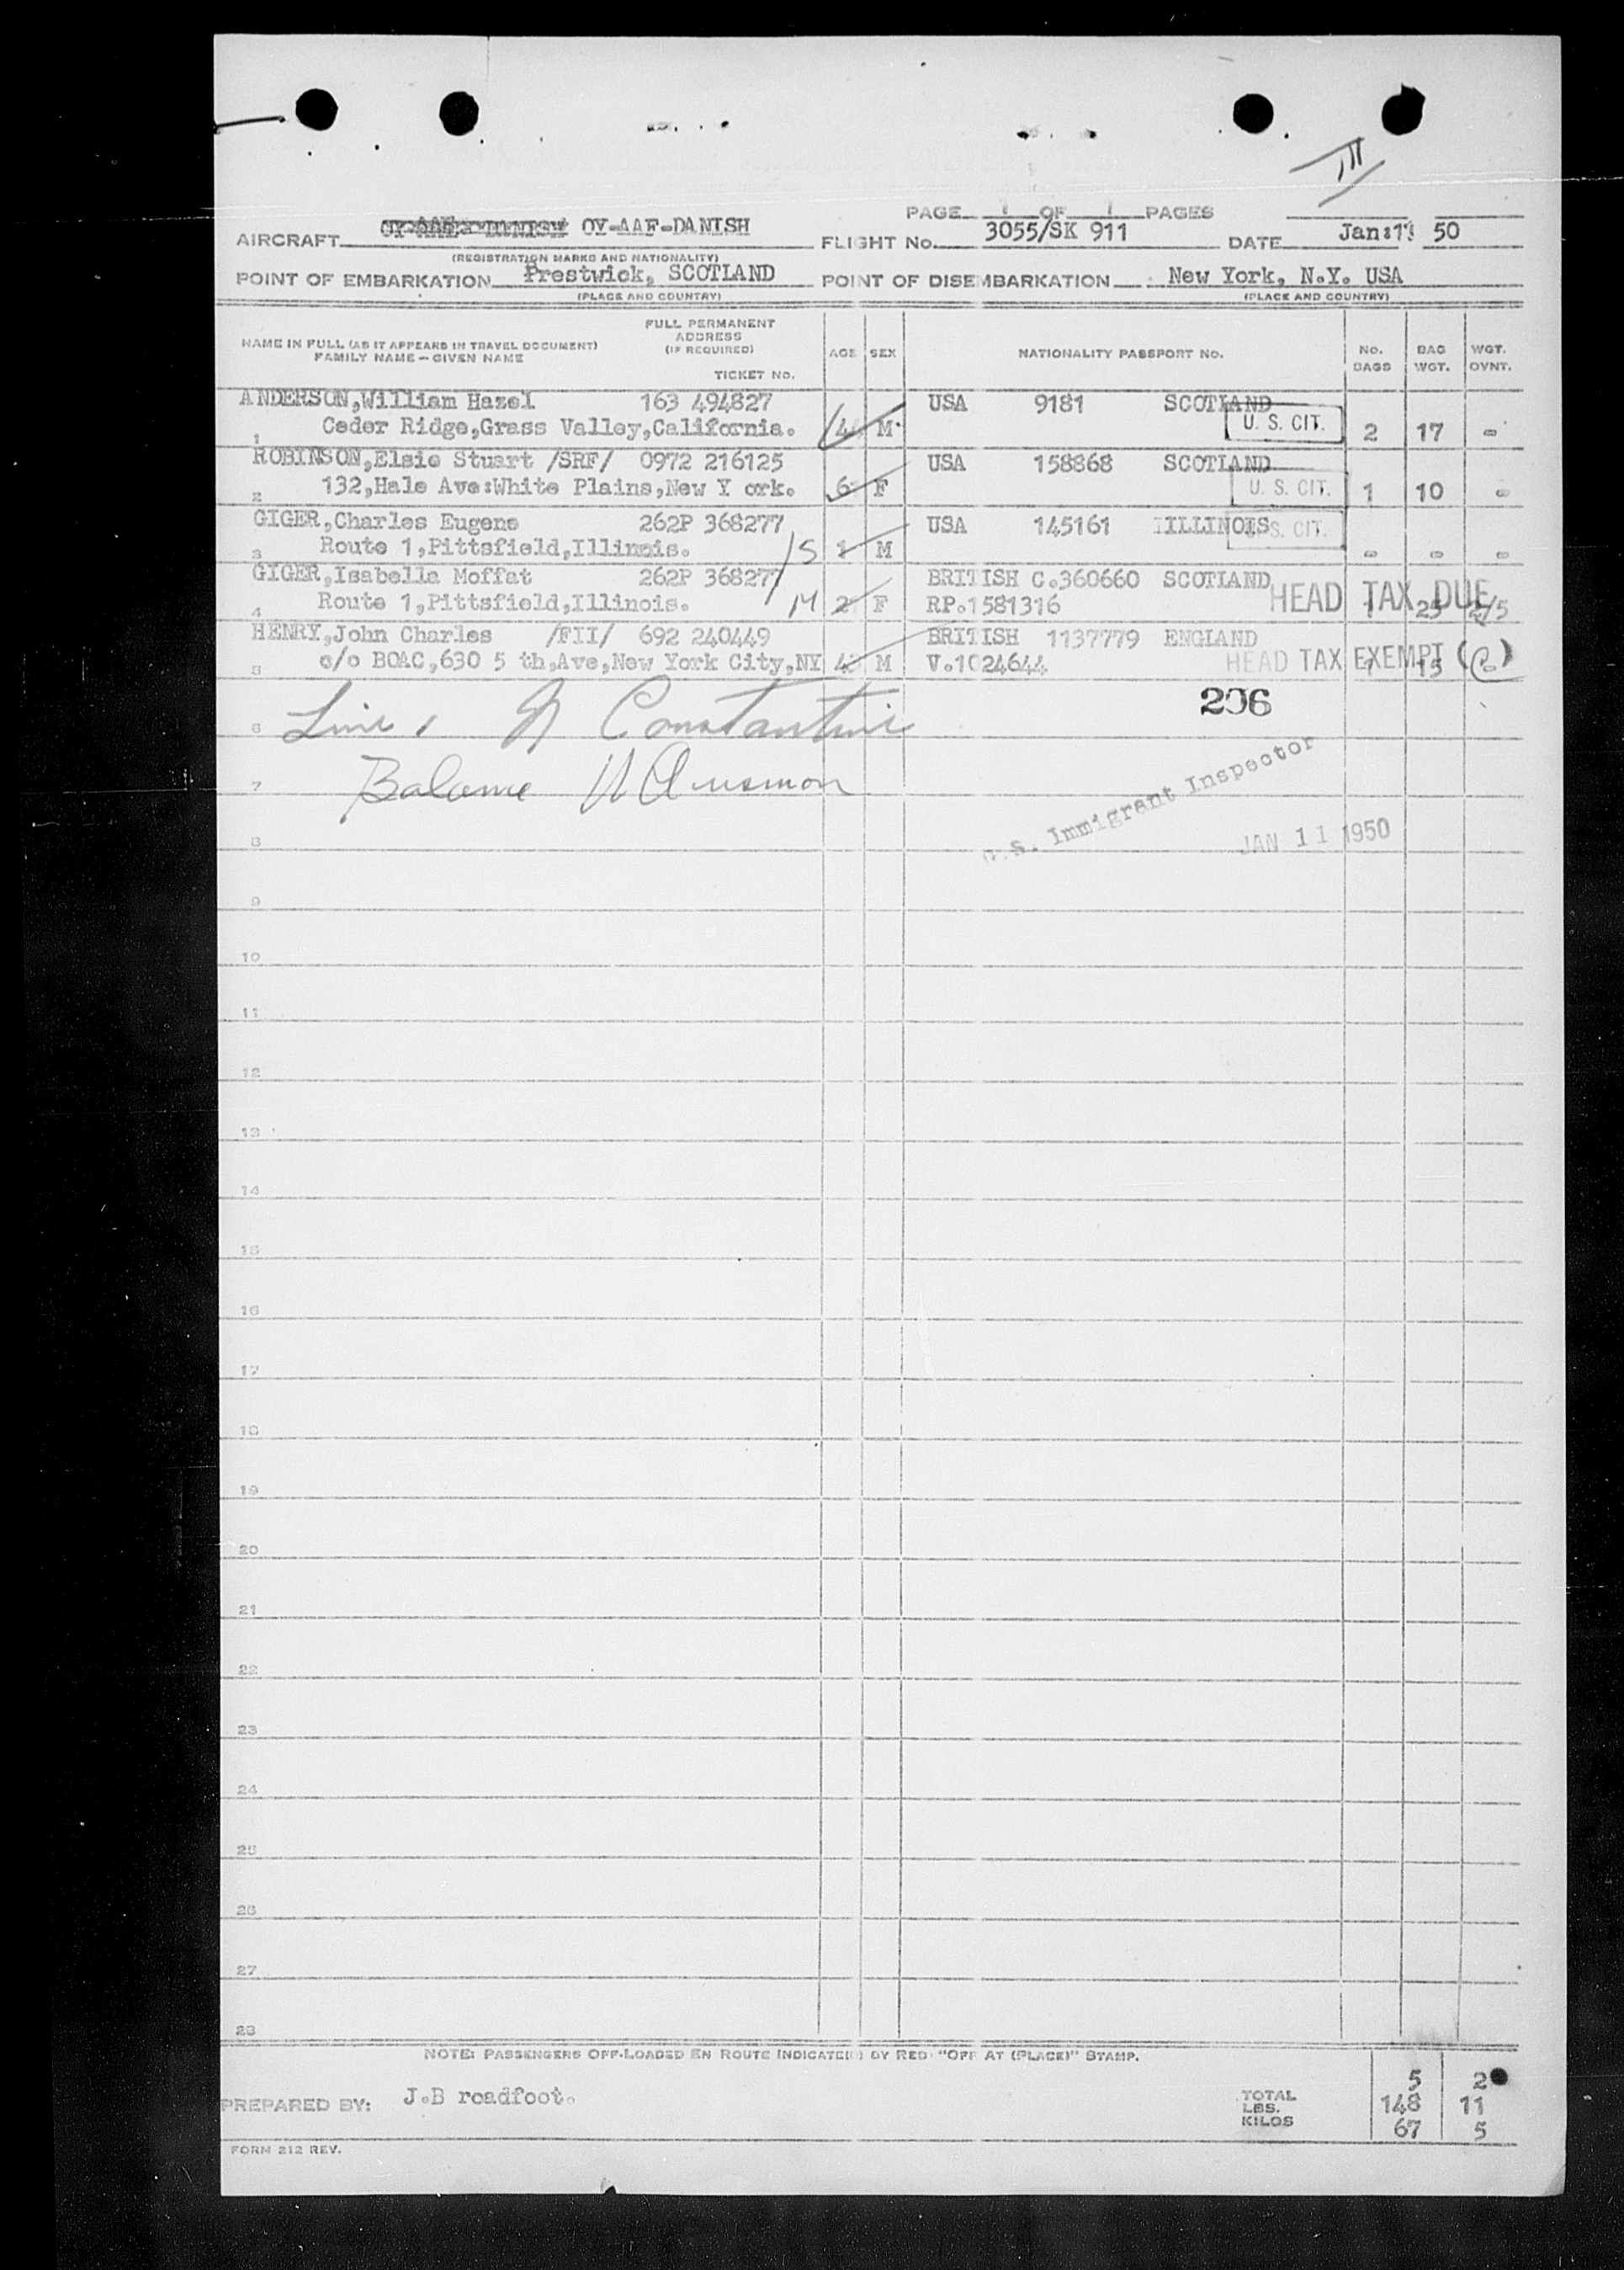 III
PAGE 1 OF 1 PAGES
AIRCRAFT OY-AAF-DANISH FLIGHT No. 3055/SK 911 DATE Jan:11 50
(REGISTRATION MARKS AND NATIONALITY)
POINT OF EMBARKATION Prestwick, SCOTLAND POINT OF DISEMBARKATION New York, N.Y. USA
(PLACE AND COUNTRY) (PLACE AND COUNTRY)
NAME IN FULL (AS IT APPEARS IN TRAVEL DOCUMENT) FAMILY NAME — GIVEN NAME FULL PERMANENT ADDRESS (IF REQUIRED) TICKET No. AGE SEX NATIONALITY PASSPORT No. No. BAGS BAG WGT. WGT. OVNT.
ANDERSON,William Hazel 163 494827 USA 9181 SCOTLAND
1 Ceder Ridge,Grass Valley,California. M U. S. CIT. 2 17 -
ROBINSON,Elsie Stuart /SRF/ 0972 216125 USA 158868 SCOTLAND
2 132,Hale Ave:White Plains,New Y ork. F U. S. CIT. 1 10 -
GIGER,Charles Eugene 262P 368277 USA 145161 ILLINOIS
3 Route 1,Pittsfield,Illinois. S M U. S. CIT. - - -
GIGER,Isabella Moffat 262P 368277 BRITISH C.360660 SCOTLAND
4 Route 1,Pittsfield,Illinois. M F RP.1581316 HEAD TAX DUE 1 25 2/5
HENRY,John Charles /FII/ 692 240449 BRITISH 1137779 ENGLAND
5 c/o BOAC,630 5 th,Ave,New York City,NY M V.1024644 HEAD TAX EXEMPT (C) 1 15
206
6 Line 1 N Constantine
7 Balance
U. S. Immigrant Inspector
8 JAN 11 1950
9
10
11
12
13
14
15
16
17
18
19
20
21
22
23
24
25
26
27
28
NOTE: PASSENGERS OFF-LOADED EN ROUTE INDICATED BY RED "OFF AT (PLACE)" STAMP.
PREPARED BY: J.B roadfoot.
TOTAL 5 2
LBS. 148 11
KILOS 67 5
FORM 212 REV.